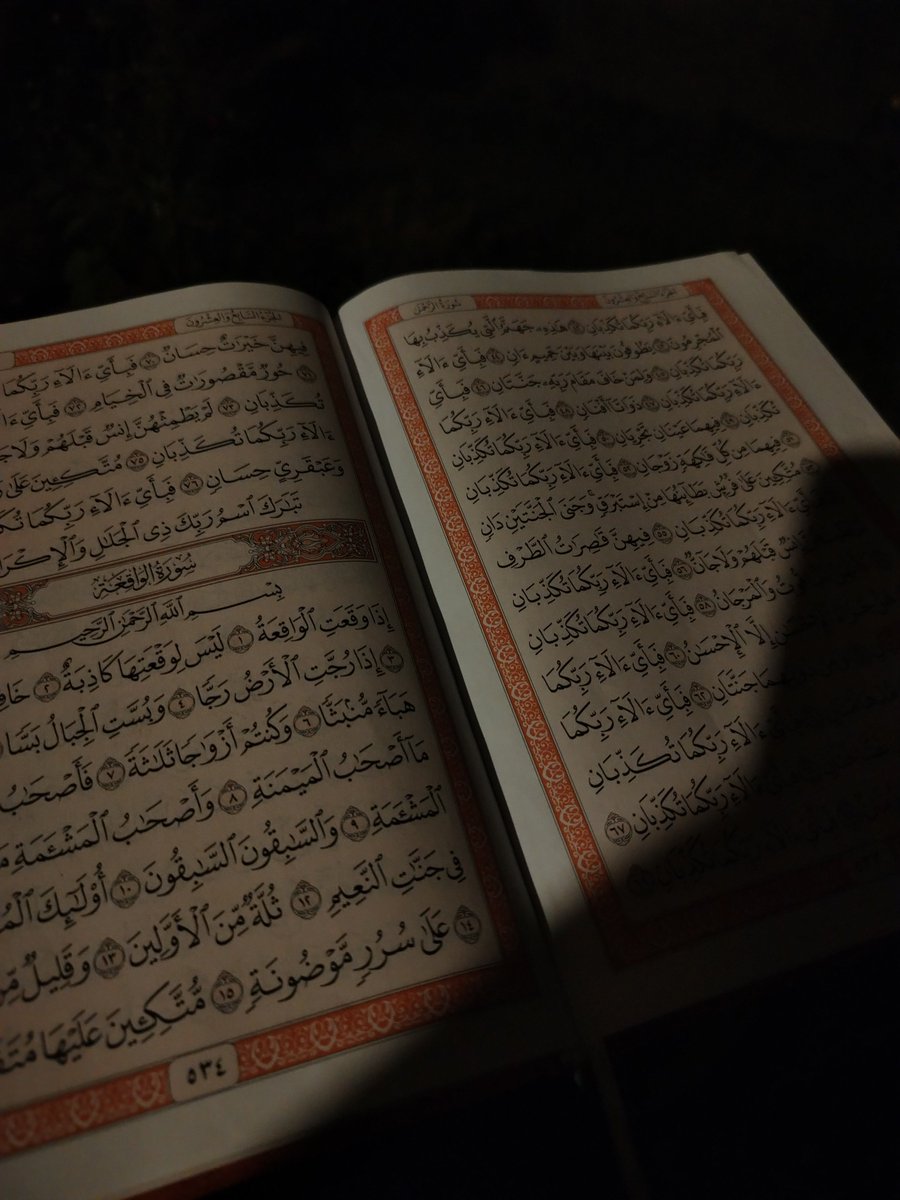 الجُزْءُ السَّابِعُ وَالعِشْرُونَ
سُورَةُ الرَّحْمَن
فَبِأَيِّ ءَالَآءِ رَبِّكُمَا تُكَذِّبَانِ ٤٢ هَٰذِهِۦ جَهَنَّمُ ٱلَّتِي يُكَذِّبُ بِهَا
ٱلْمُجْرِمُونَ ٤٣ يَطُوفُونَ بَيْنَهَا وَبَيْنَ حَمِيمٍ ءَانٍ ٤٤ فَبِأَيِّ ءَالَآءِ
رَبِّكُمَا تُكَذِّبَانِ ٤٥ وَلِمَنْ خَافَ مَقَامَ رَبِّهِۦ جَنَّتَانِ ٤٦ فَبِأَيِّ
ءَالَآءِ رَبِّكُمَا تُكَذِّبَانِ ٤٧ ذَوَاتَآ أَفْنَانٍ ٤٨ فَبِأَيِّ ءَالَآءِ رَبِّكُمَا
تُكَذِّبَانِ ٤٩ فِيهِمَا عَيْنَانِ تَجْرِيَانِ ٥٠ فَبِأَيِّ ءَالَآءِ رَبِّكُمَا تُكَذِّبَانِ
٥١ فِيهِمَا مِن كُلِّ فَٰكِهَةٍ زَوْجَانِ ٥٢ فَبِأَيِّ ءَالَآءِ رَبِّكُمَا تُكَذِّبَانِ
٥٣ مُتَّكِـِٔينَ عَلَىٰ فُرُشٍۭ بَطَآئِنُهَا مِنْ إِسْتَبْرَقٍ وَجَنَى ٱلْجَنَّتَيْنِ دَانٍ
ءَالَآءِ رَبِّكُمَا تُكَذِّبَانِ ٥٥ فِيهِنَّ قَٰصِرَٰتُ ٱلطَّرْفِ
إِنسٌ قَبْلَهُمْ وَلَا جَآنٌّ ٥٦ فَبِأَيِّ ءَالَآءِ رَبِّكُمَا تُكَذِّبَانِ
وَٱلْمَرْجَانُ ٥٨ فَبِأَيِّ ءَالَآءِ رَبِّكُمَا تُكَذِّبَانِ
إِلَّا ٱلْإِحْسَٰنُ ٦٠ فَبِأَيِّ ءَالَآءِ رَبِّكُمَا
جَنَّتَانِ ٦٢ فَبِأَيِّ ءَالَآءِ رَبِّكُمَا
ءَالَآءِ رَبِّكُمَا تُكَذِّبَانِ
ءَالَآءِ رَبِّكُمَا تُكَذِّبَانِ ٦٧
تُكَذِّبَانِ
الجُزْءُ السَّابِعُ وَالعِشْرُونَ
فِيهِنَّ خَيْرَٰتٌ حِسَانٌ ٧٠ فَبِأَيِّ ءَالَآءِ رَبِّكُمَا
٧١ حُورٌ مَّقْصُورَٰتٌ فِي ٱلْخِيَامِ ٧٢ فَبِأَيِّ
تُكَذِّبَانِ ٧٣ لَمْ يَطْمِثْهُنَّ إِنسٌ قَبْلَهُمْ وَلَا
ءَالَآءِ رَبِّكُمَا تُكَذِّبَانِ ٧٥ مُتَّكِـِٔينَ عَلَىٰ
وَعَبْقَرِيٍّ حِسَانٍ ٧٦ فَبِأَيِّ ءَالَآءِ رَبِّكُمَا
تَبَٰرَكَ ٱسْمُ رَبِّكَ ذِي ٱلْجَلَٰلِ وَٱلْإِكْرَامِ
سُورَةُ الوَاقِعَة
بِسْمِ ٱللَّهِ ٱلرَّحْمَٰنِ ٱلرَّحِيمِ
إِذَا وَقَعَتِ ٱلْوَاقِعَةُ ١ لَيْسَ لِوَقْعَتِهَا كَاذِبَةٌ ٢
٣ إِذَا رُجَّتِ ٱلْأَرْضُ رَجًّا ٤ وَبُسَّتِ ٱلْجِبَالُ بَسًّا
هَبَآءً مُّنۢبَثًّا ٦ وَكُنتُمْ أَزْوَٰجًا ثَلَٰثَةً ٧ فَأَصْحَٰبُ
مَآ أَصْحَٰبُ ٱلْمَيْمَنَةِ ٨ وَأَصْحَٰبُ ٱلْمَشْـَٔمَةِ
ٱلْمَشْـَٔمَةِ ٩ وَٱلسَّٰبِقُونَ ٱلسَّٰبِقُونَ ١٠ أُو۟لَٰٓئِكَ
فِي جَنَّٰتِ ٱلنَّعِيمِ ١٢ ثُلَّةٌ مِّنَ ٱلْأَوَّلِينَ ١٣ وَقَلِيلٌ
١٤ عَلَىٰ سُرُرٍ مَّوْضُونَةٍ ١٥ مُّتَّكِـِٔينَ عَلَيْهَا
٥٣٤